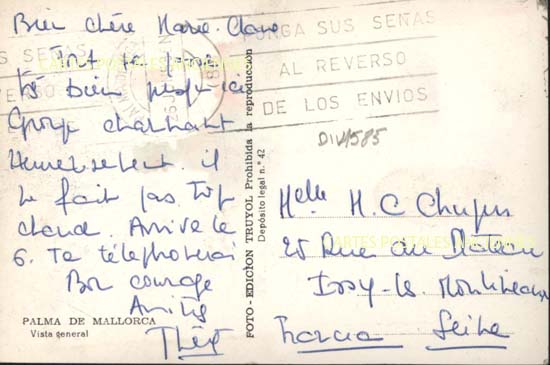 Bien chère Marie-Claire
Fort
ts bien profit ici
Groupe charmant
Heureusement il
ne fait pas trop
chaud. Arrive le
6. Te téléphonerai
Bon courage
Amitiés
PALMA DE MALLORCA
Vista general
FOTO - EDICION TRUYOL Prohibida la reproduccion
Depósito legal n.º 42
PONGA SUS SEÑAS
AL REVERSO
DE LOS ENVIOS
S SEÑAS
DIV1585
Melle M. C
25 Rue du Plateau
Issy-les-Moulineaux
Francia Seine
CARTES POSTALES